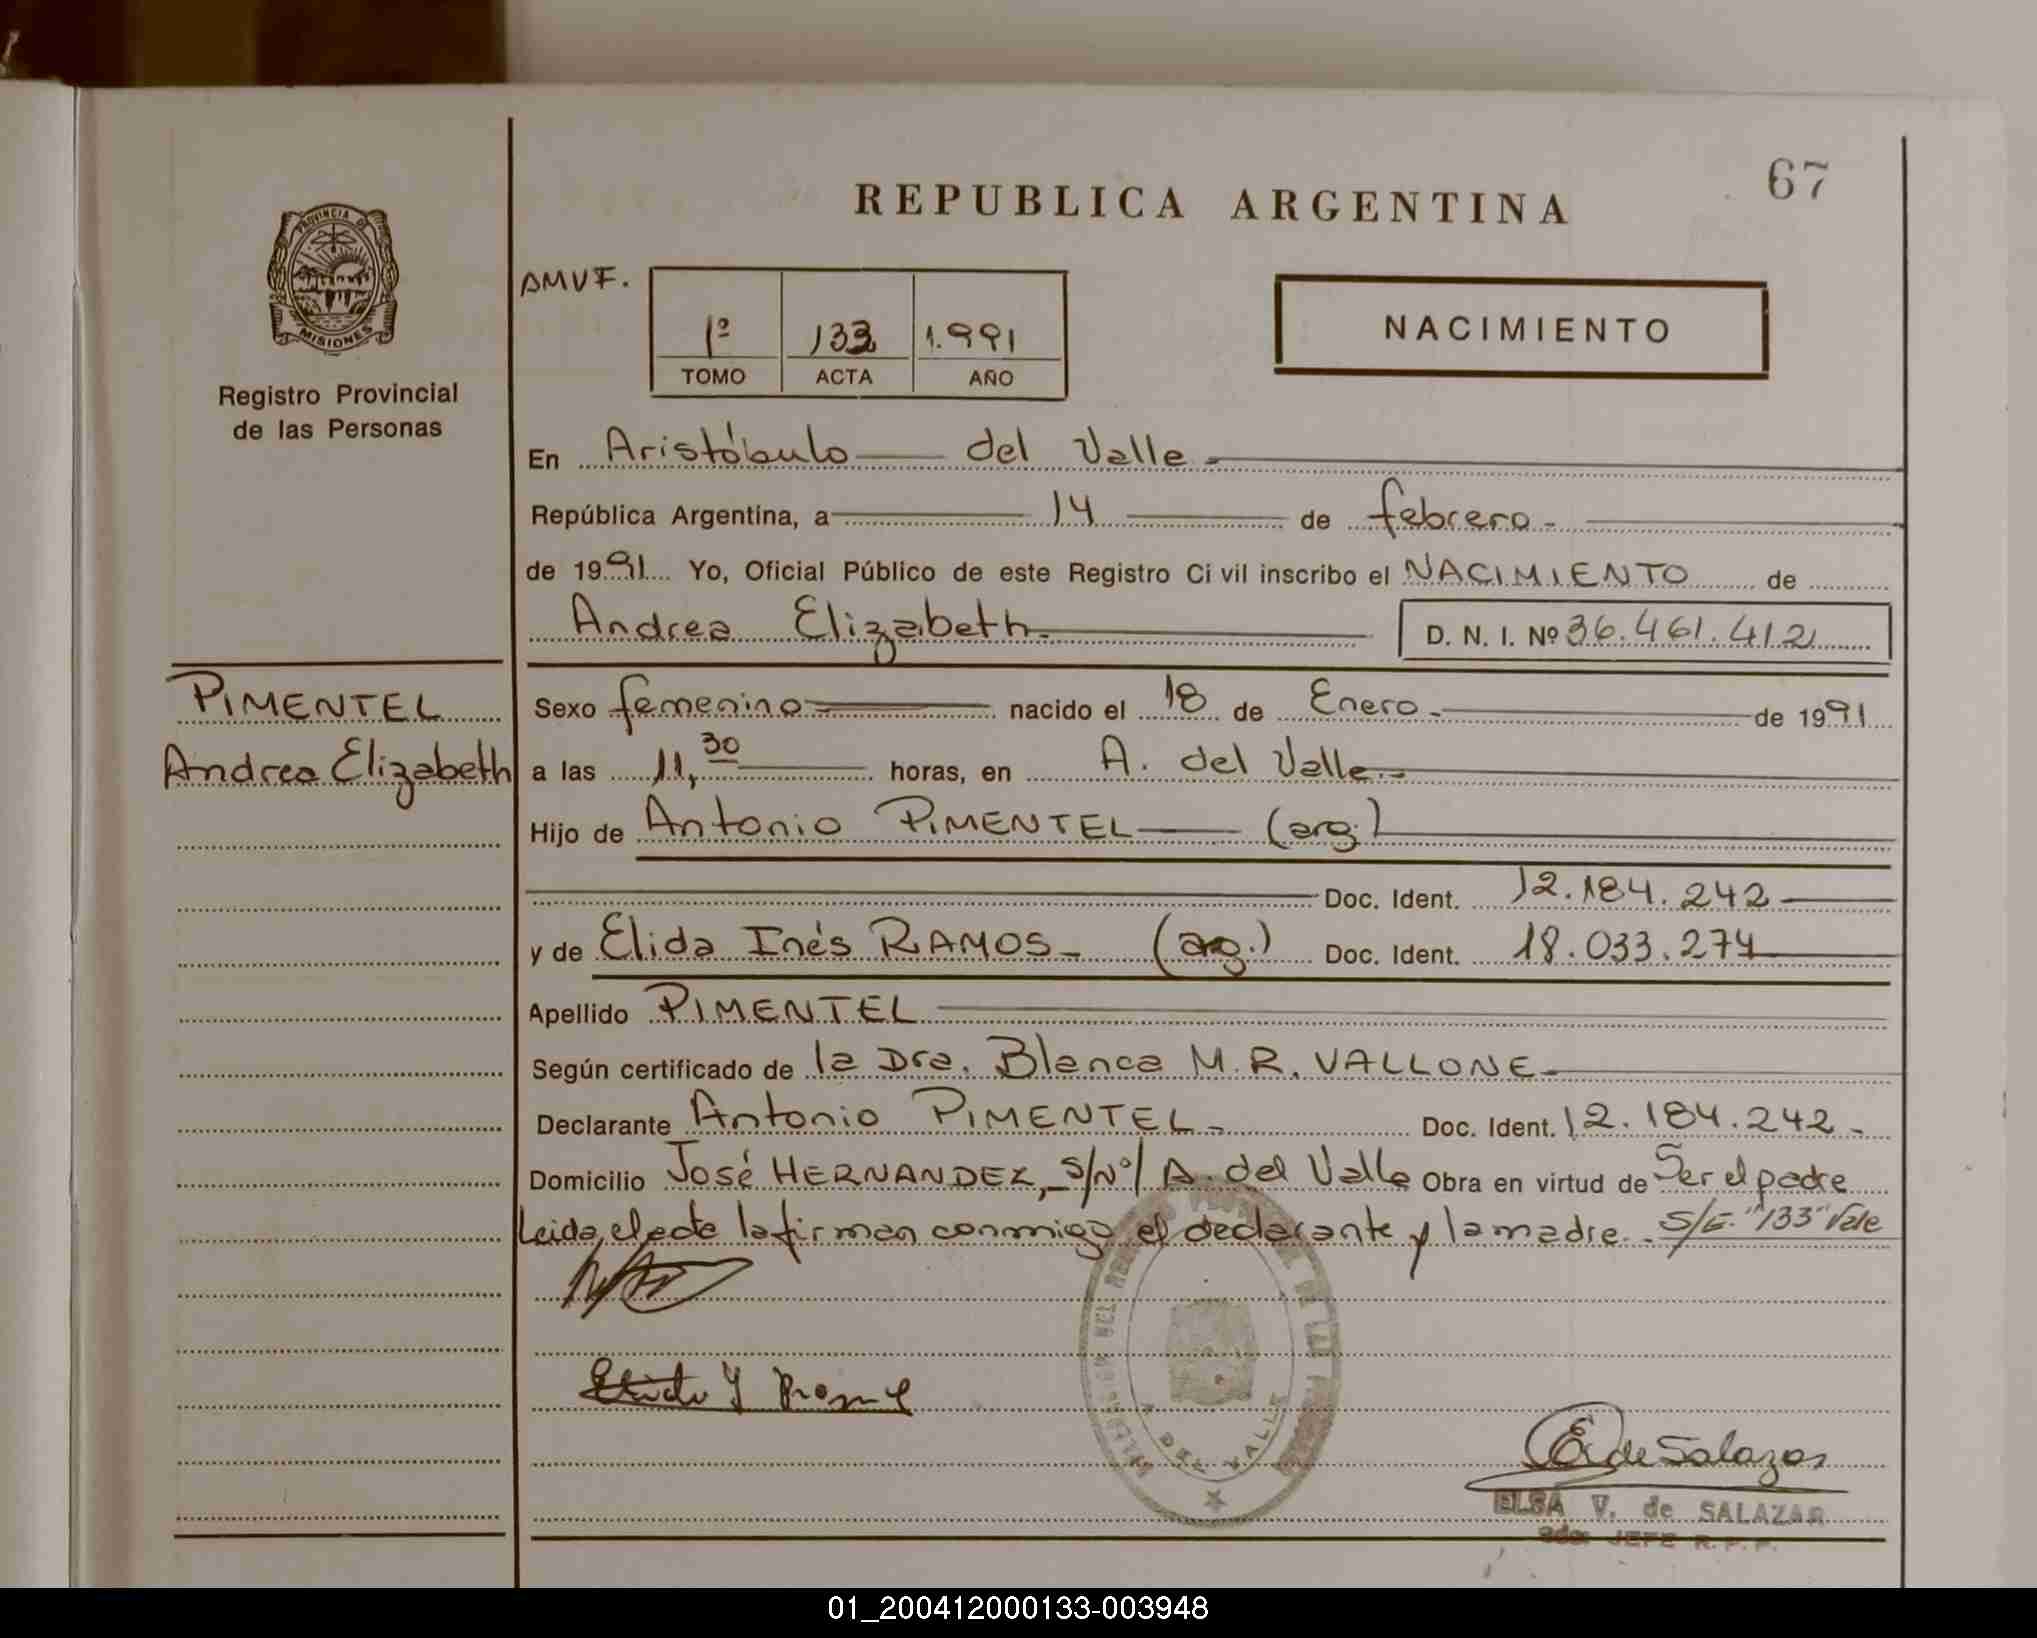 67
REPUBLICA ARGENTINA
PROVINCIA DE
MISIONES
Registro Provincial
de las Personas
AMVF.
1º 133 1.991
TOMO ACTA AÑO
NACIMIENTO
En Aristóbulo del Valle.
República Argentina, a 14 de febrero.
de 1991 Yo, Oficial Público de este Registro Ci vil inscribo el NACIMIENTO de
Andrea Elizabeth. D. N. I. Nº 36.461.412
PIMENTEL
Andrea Elizabeth
Sexo femenino nacido el 18 de Enero. de 1991
a las 11,30 horas, en A. del Valle.
Hijo de Antonio PIMENTEL (arg.)
Doc. Ident. 12.184.242
y de Elida Inés RAMOS. (arg.) Doc. Ident. 18.033.274
Apellido PIMENTEL
Según certificado de la Dra. Blanca M.R. VALLONE.
Declarante Antonio PIMENTEL. Doc. Ident. 12.184.242.
Domicilio José HERNANDEZ, S/Nº/ A. del Valle Obra en virtud de Ser el padre
Leida, el acta la firman conmigo el declarante y la madre. S/E. "133" Vale
E de Salazar
ELSA V. de SALAZAR
JEFE R. P. P.
A. DEL VALLE
01_200412000133-003948